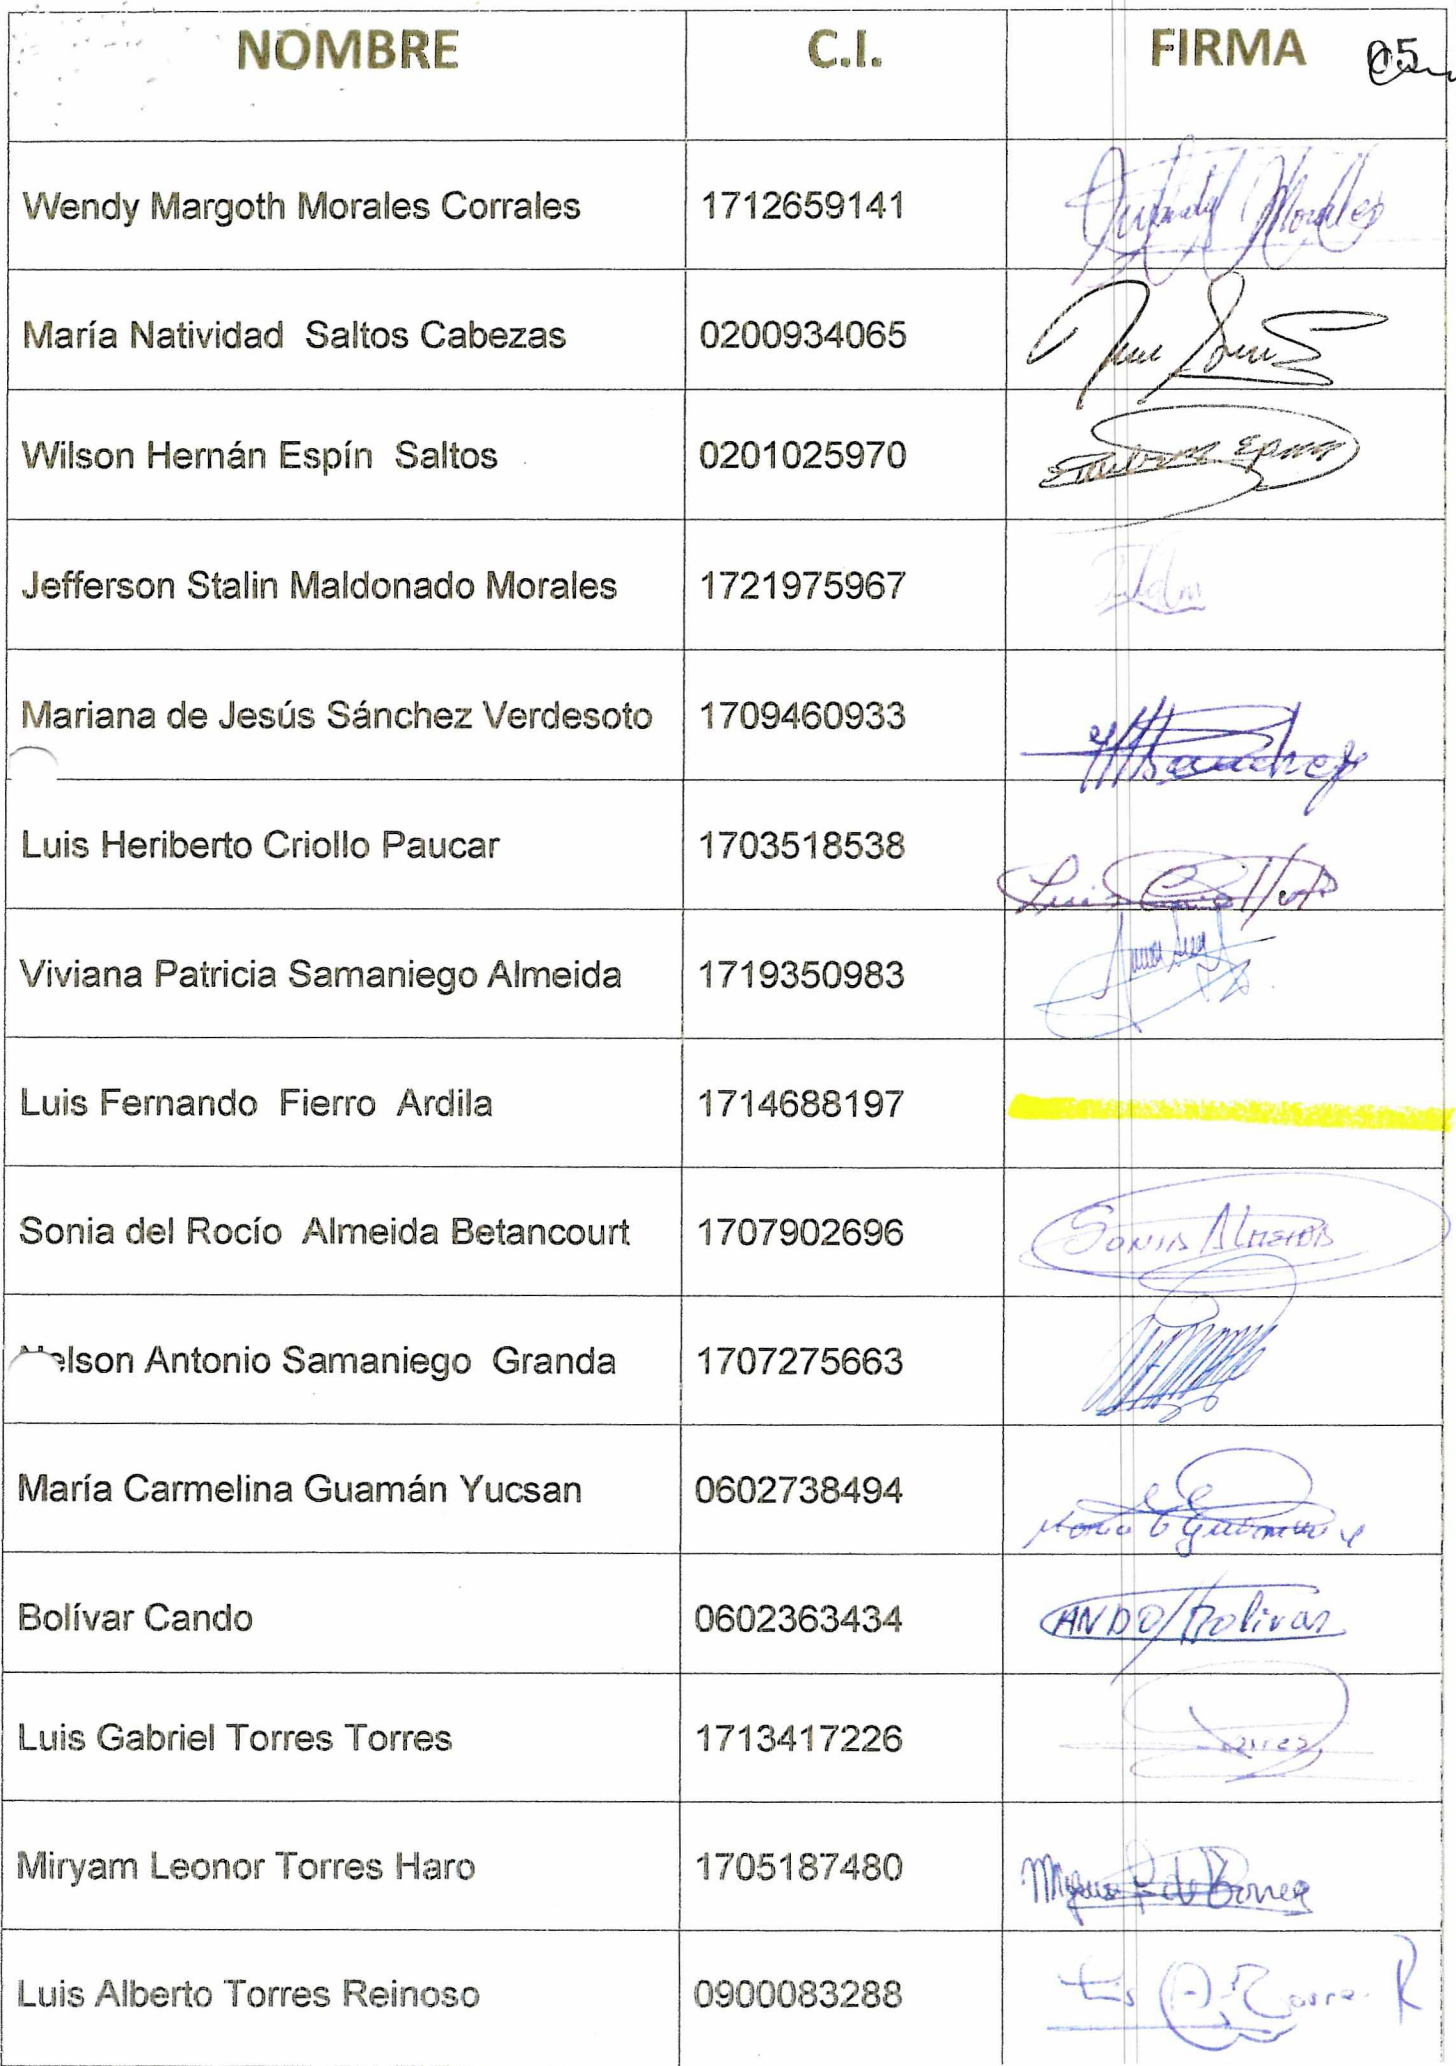 NOMBRE C.I. FIRMA 05
Wendy Margoth Morales Corrales 1712659141 Morales
María Natividad Saltos Cabezas 0200934065
Wilson Hernán Espín Saltos 0201025970
Jefferson Stalin Maldonado Morales 1721975967
Mariana de Jesús Sánchez Verdesoto 1709460933 Sanchez
Luis Heriberto Criollo Paucar 1703518538 Luis Criollo
Viviana Patricia Samaniego Almeida 1719350983
Luis Fernando Fierro Ardila 1714688197
Sonia del Rocío Almeida Betancourt 1707902696 SONIA ALMEIDA
Nelson Antonio Samaniego Granda 1707275663
María Carmelina Guamán Yucsan 0602738494
Bolívar Cando 0602363434 CANDO Bolivar
Luis Gabriel Torres Torres 1713417226
Miryam Leonor Torres Haro 1705187480
Luis Alberto Torres Reinoso 0900083288